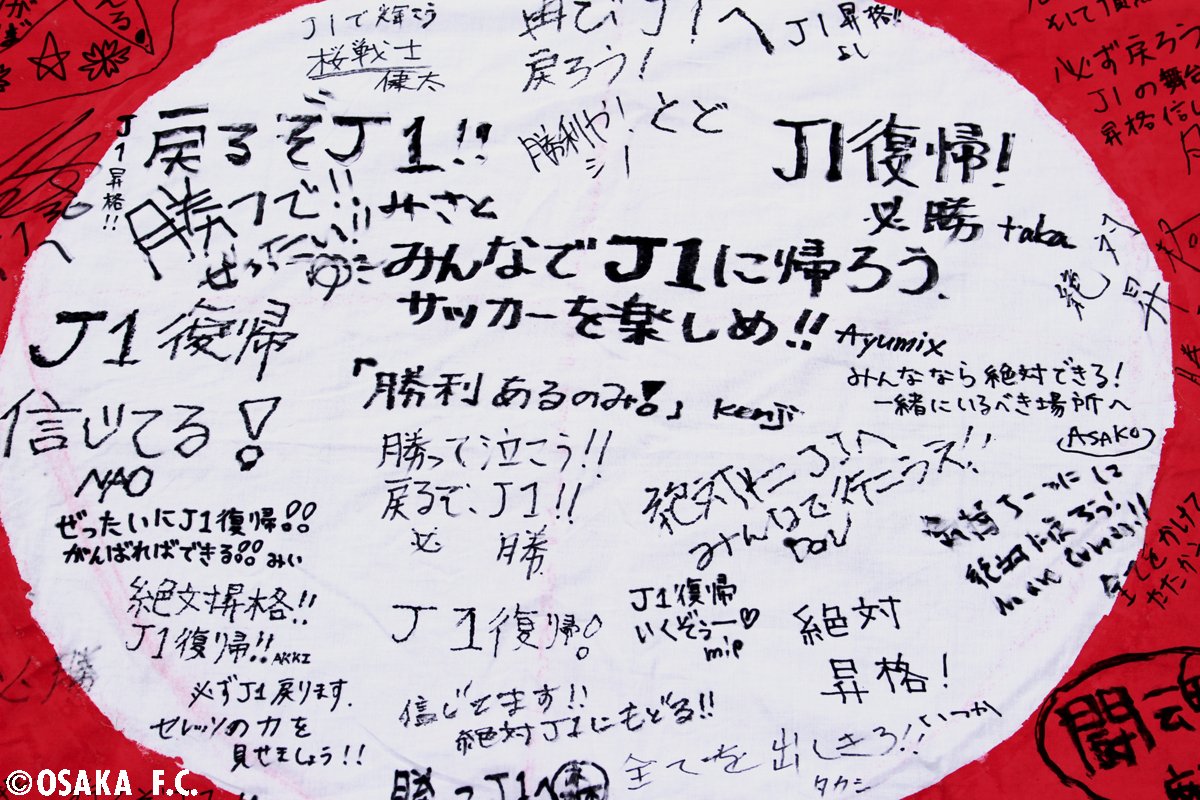 J1で輝こう
桜戦士
健太
再びJ1へ
戻ろう!
J1昇格!!
よし
必ず戻ろう
J1の舞台
J1昇格!!
戻るぞJ1!!
勝利や!
とど
J1復帰!
必勝 taka
勝つで!! みさと
みんなでJ1に帰ろう.
サッカーを楽しめ!! Ayumix
J1復帰
信じてる!
NAO
「勝利あるのみ!」 Kenji
みんななら絶対できる!
一緒にいるべき場所へ
ASAKO
勝って泣こう!!
戻るで、J1!!
必勝
ぜったいにJ1復帰!!
がんばればできる!! みい
絶対昇格!!
J1復帰!! AKKI
J1復帰!
J1復帰
いくぞぅー♡
mip
絶対
昇格!
必勝
必ずJ1戻ります.
セレッソの力を
見せましょう!!
信じてます!!
絶対J1にもどる!!
全てを出しきろ!!
タカシ
J1へ
闘魂
©OSAKA F.C.